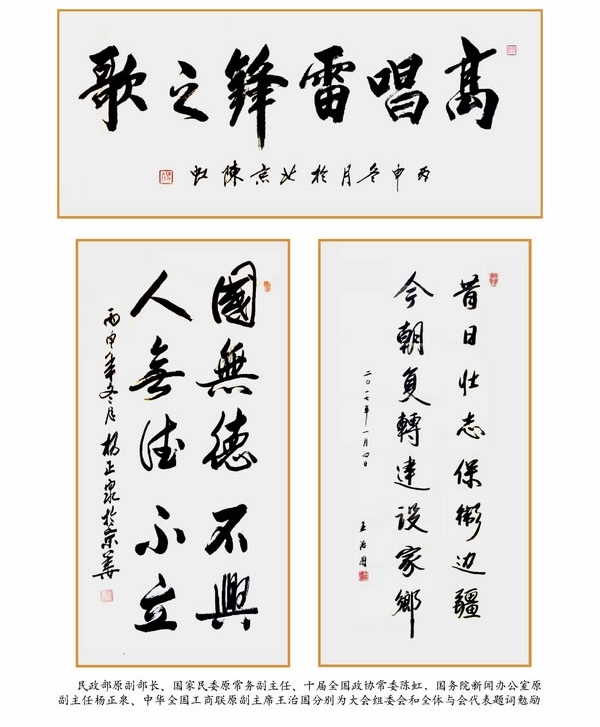 高唱雷鋒之歌
丙申冬月於北京陳虹
國無德不興
人無德不立
丙申年冬月楊正泉於京華
昔日壮志保衛边疆
今朝复轉建設家鄉
二〇一七年一月四日
王治國
民政部原副部长、国家民委原常务副主任、十届全国政协常委陈虹，国务院新闻办公室原
副主任杨正泉、中华全国工商联原副主席王治国分别为大会组委会和全体与会代表题词勉励